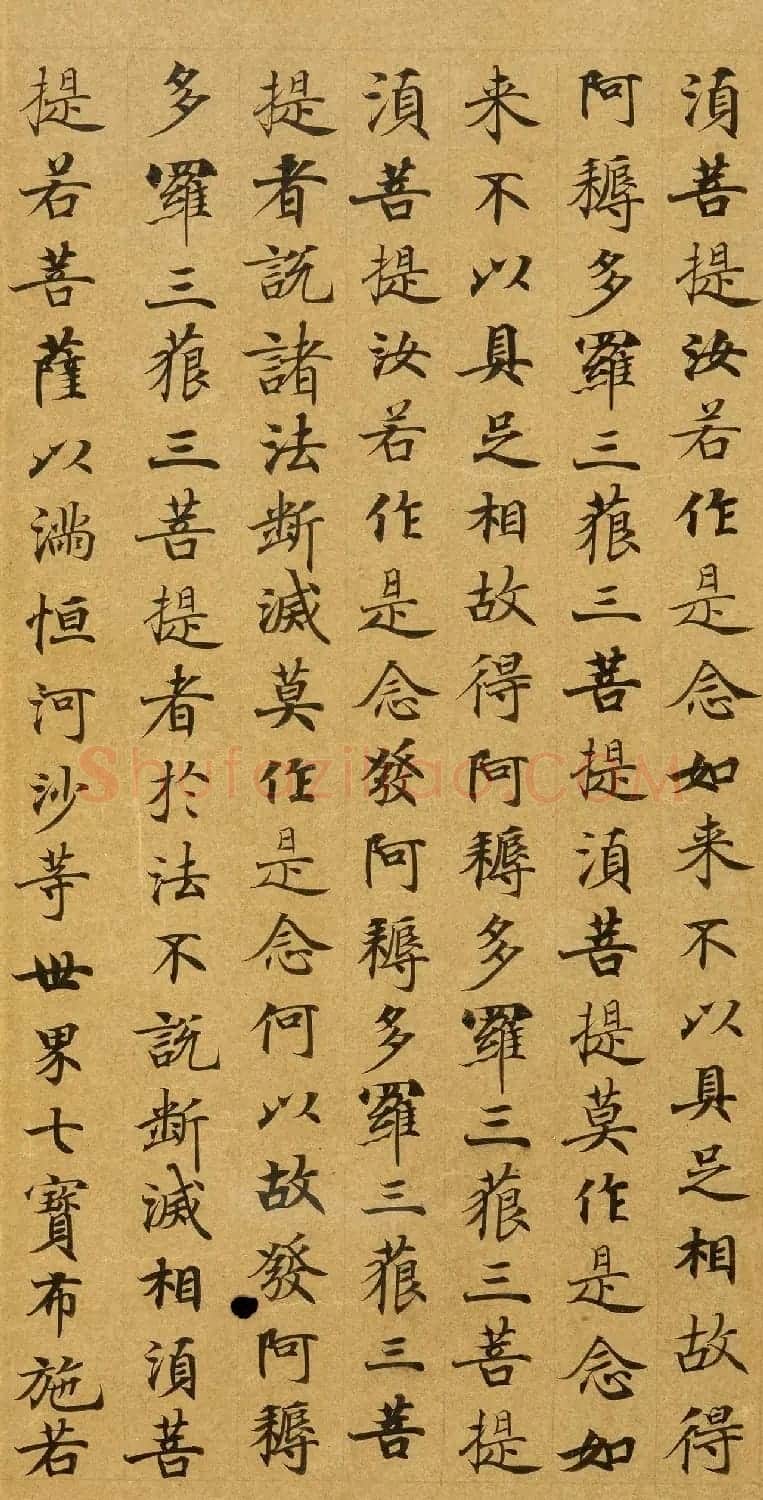 湏菩提汝若作是念如来不以具足相故得
阿耨多羅三藐三菩提湏菩提莫作是念如
来不以具足相故得阿耨多羅三藐三菩提
湏菩提汝若作是念發阿耨多羅三藐三菩
提者說諸法斷滅莫作是念何以故發阿耨
多羅三藐三菩提者於法不說斷滅相湏菩
提若菩薩以滿恒河沙等世界七寶布施若
Shufaziliao.COM